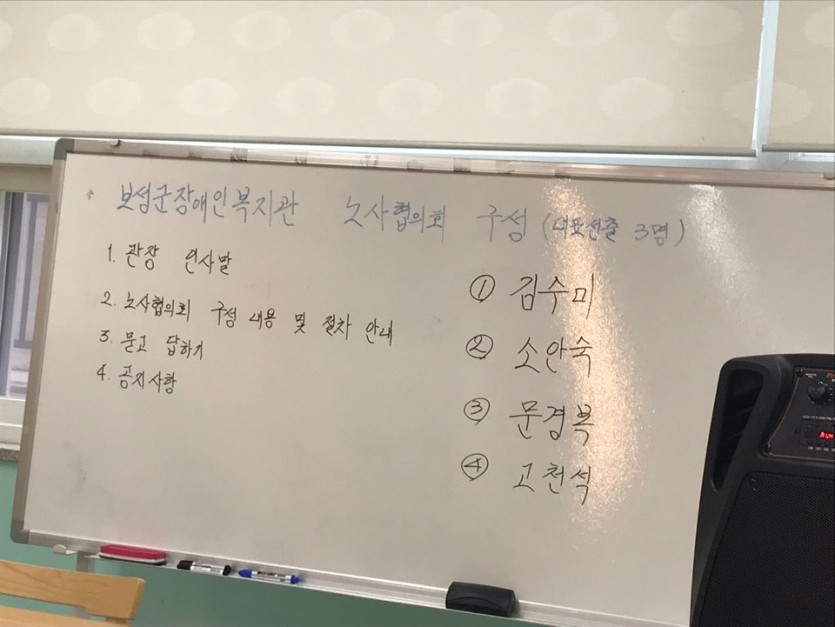 * 보성군장애인복지관 노사협의회 구성 (대표선출 3명)
1. 관장 인사말
2. 노사협의회 구성 내용 및 절차 안내
3. 묻고 답하기
4. 공지사항
① 김수미
② 소안숙
③ 문경복
④ 고천석